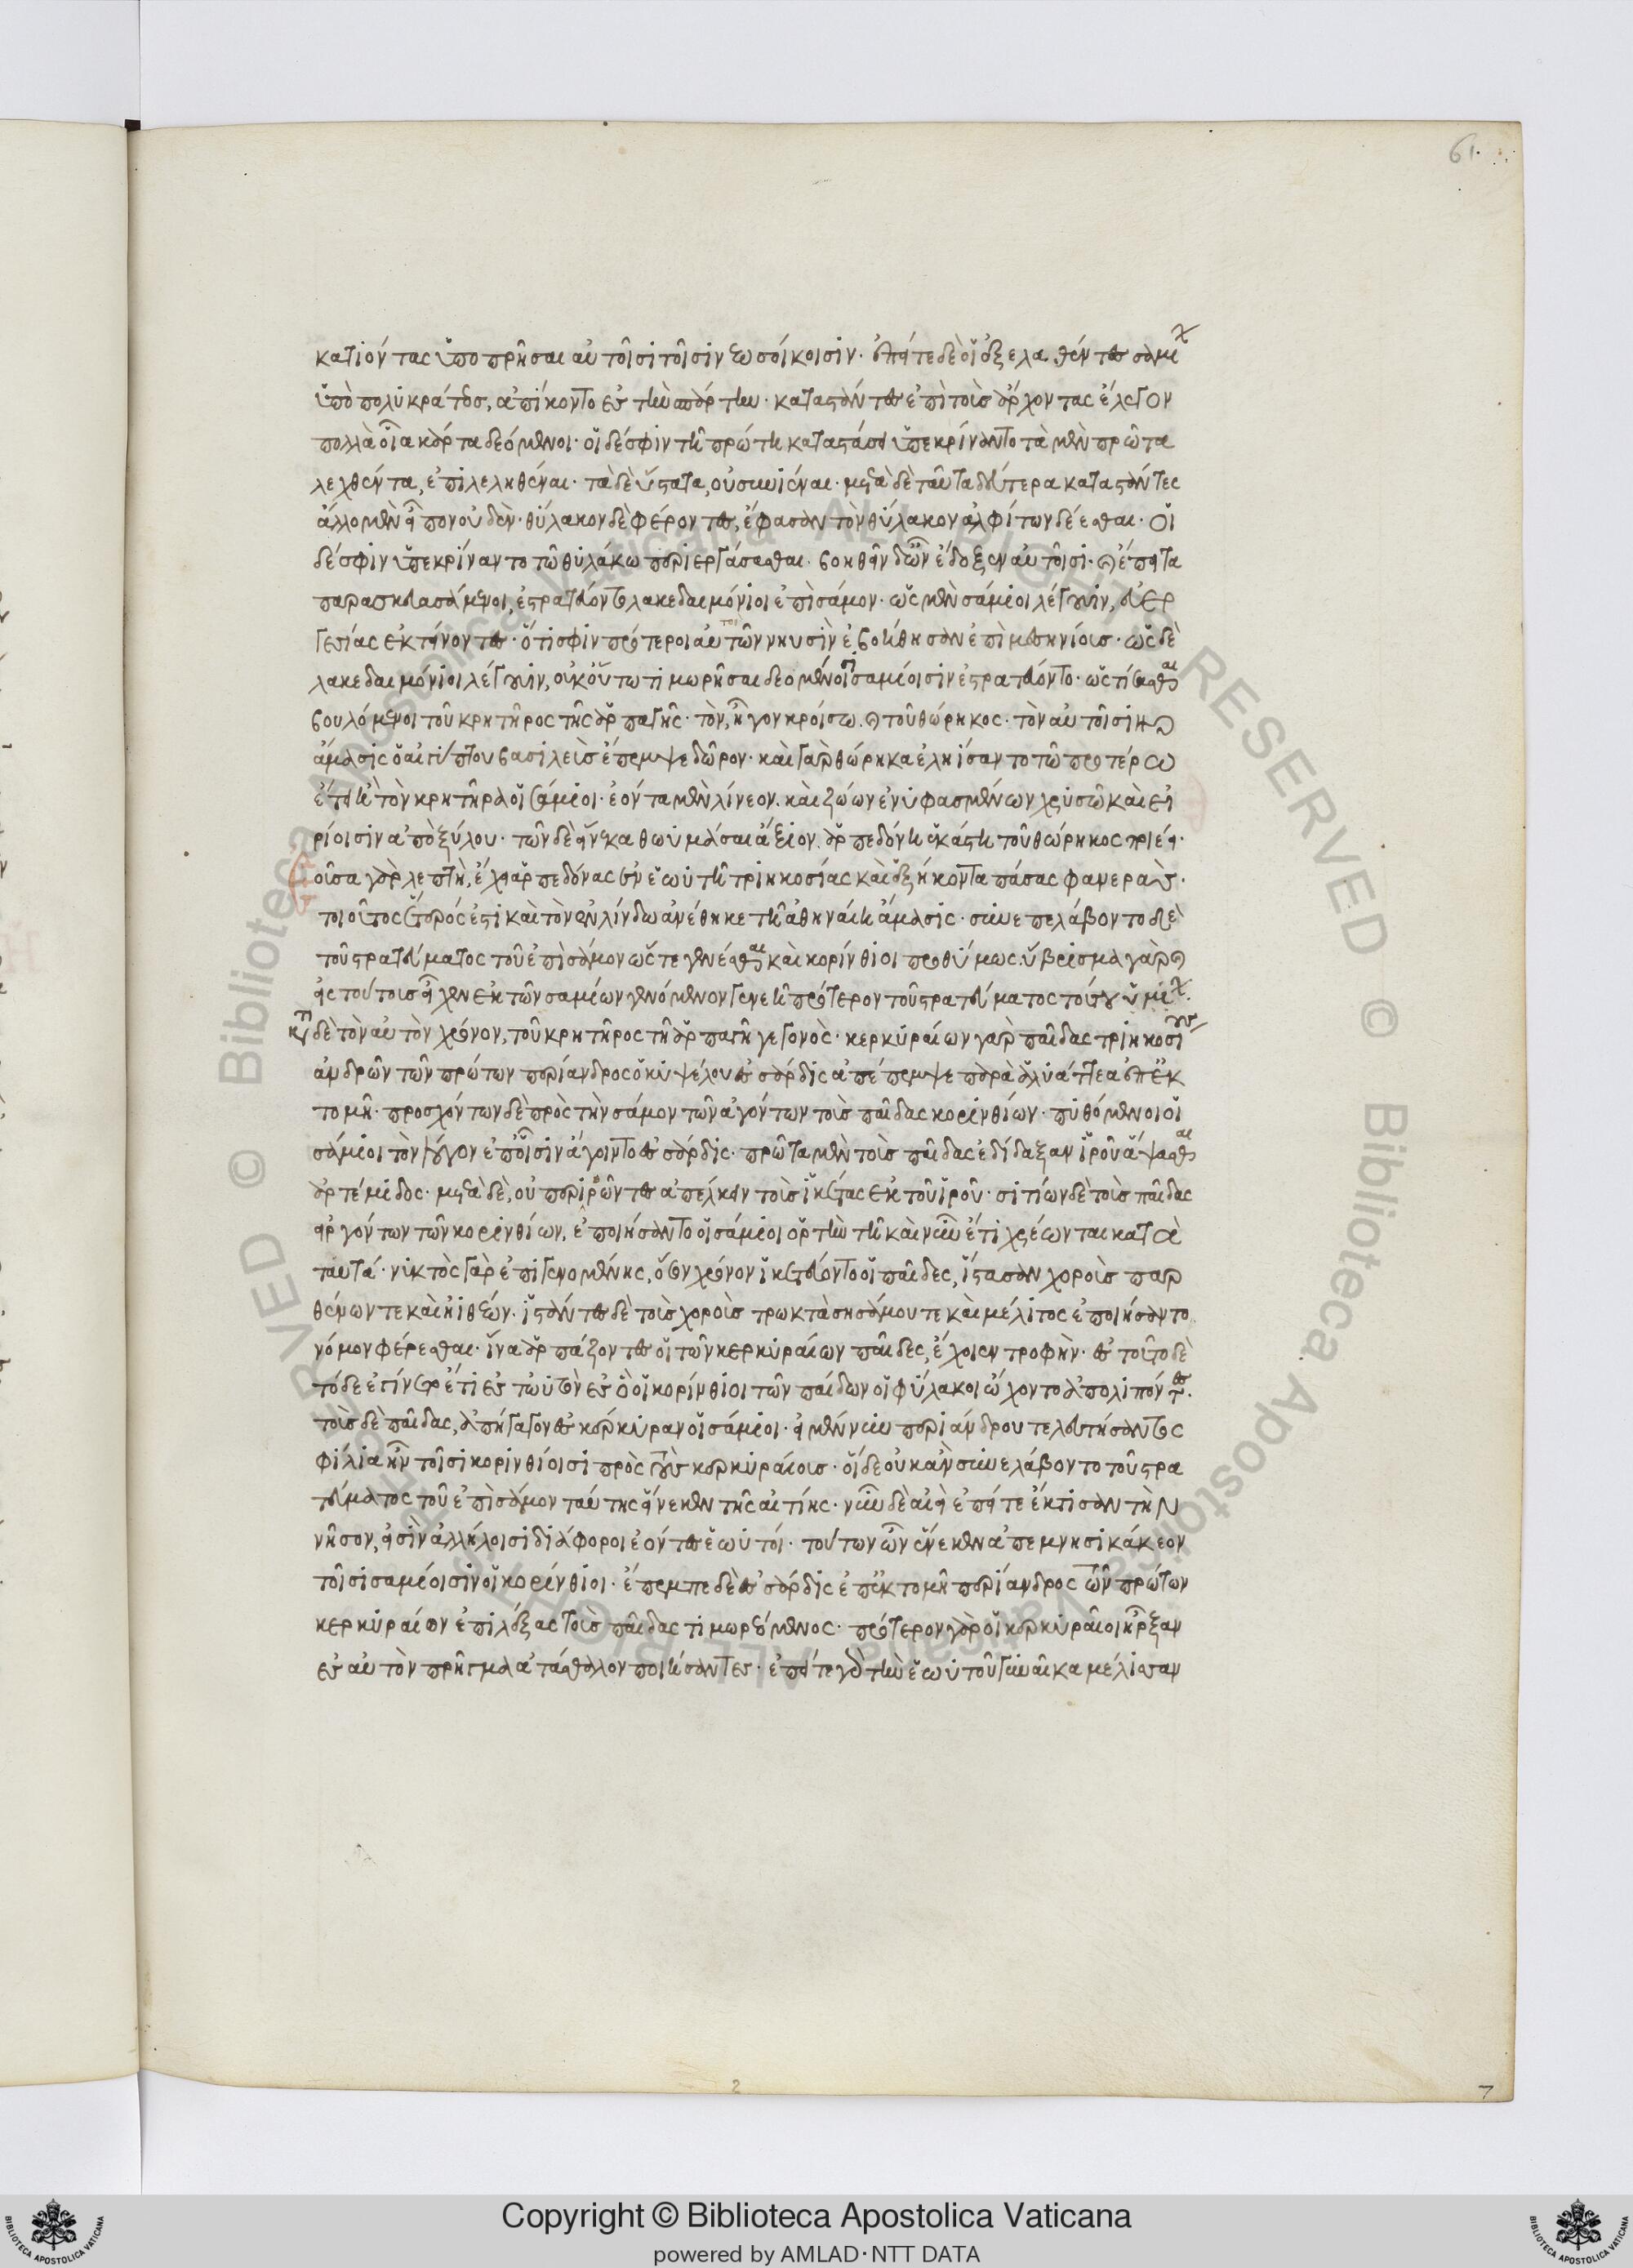 61.
κατιόντας ὑποπρῆσαι αὐτοῖσι τοῖσι νεωσοίκοισιν· ἐπείτε δὲ οἱ ἐξελαθέντες σαμί
ὑπὸ πολυκράτεος, ἀπίκοντο ἐς τὴν σπάρτην· καταστάντες ἐπὶ τοὺς ἄρχοντας ἔλεγον
πολλὰ οἷα κάρτα δεόμενοι· οἱ δέ σφιν τῇ πρώτῃ καταστάσει ὑπεκρίναντο τὰ μὲν πρῶτα
λεχθέντα, ἐπιλεληθέναι· τὰ δὲ ὕστατα, οὐ συνιέναι· μετὰ δὲ ταῦτα δεύτερα καταστάντες
ἄλλο μὲν εἶπον οὐδὲν· θύλακον δὲ φέροντες, ἔφασαν τὸν θύλακον ἀλφίτων δέεσθαι· οἱ
δέ σφιν ὑπεκρίναντο τῷ θυλάκῳ περιεργάσασθαι· βοηθεῖν δ' ὦν ἔδοξεν αὐτοῖσι· καὶ ἔπειτα
παρασκευασάμενοι, ἐστρατεύοντο λακεδαιμόνιοι ἐπὶ σάμον· ὡς μὲν σάμιοι λέγουσιν, εὐερ
γεσίας ἐκτίνοντες· ὅτι σφιν πρότεροι αὐτῶν νηυσὶν ἐβοήθησαν ἐπὶ μεσηνίους· ὡς δὲ
λακεδαιμόνιοι λέγουσιν, οὐκ οὕτω τιμωρῆσαι δεομένοισι σαμίοισιν ἐστρατεύοντο· ὡς τίσασθαι
βουλόμενοι τοῦ κρητῆρος τῆς ἁρπαγῆς· τὸν, ἦγον κροίσῳ· καὶ τοῦ θώρηκος· τὸν αὐτοῖσι
ἄμασις ὁ αἰγύπτου βασιλεὺς ἔπεμψε δῶρον· καὶ γὰρ θώρηκα ἐληίσαντο τῷ προτέρω
ἔτεϊ ἢ τὸν κρητῆρα οἱ σάμιοι· ἐόντα μὲν λίνεον· καὶ ζώων ἐνυφασμένων χρυσῷ καὶ εἰ
ρίοισιν ἀπὸ ξύλου· τῶν δὲ εἵνεκα θωυμάσαι ἄξιον ἁρπεδόνη ἑκάστη τοῦ θώρηκος ποιέει·
οὖσα γὰρ λεπτὴ, ἔχει ἁρπεδόνας ἐν ἑωυτῇ τριηκοσίας καὶ ἑξήκοντα πάσας φανεράς·
τοιοῦτος ἕτερός ἐστι καὶ τὸν ἐν λίνδῳ ἀνέθηκε τῇ ἀθηναίῃ ἄμασις· συνεπελάβοντο δὲ
τοῦ στρατεύματος τοῦ ἐπὶ σάμον ὥστε γενέσθαι καὶ κορίνθιοι προθύμως· ὕβρισμα γὰρ καὶ
ἐς τούτους εἶχεν ἐκ τῶν σαμίων γενόμενον γενεῇ πρότερον τοῦ στρατεύματος τούτου
δὲ τὸν αὐτὸν χρόνον, τοῦ κρητῆρος τῇ ἁρπαγῇ γεγονὸς· κερκυραίων γὰρ παῖδας τριηκοσίους
ἀνδρῶν τῶν πρώτων περίανδρος ὁ κυψέλου ἐς σάρδις ἀπέπεμψε παρὰ ἀλυάττεα ἐπ' ἐκ
τομῇ· προσχόντων δὲ πρὸς τὴν σάμον τῶν ἀγόντων τοὺς παῖδας κορινθίων· πυθόμενοι οἱ
σάμιοι τὸν λόγον ἐπ' οἷσιν ἀγοίντο ἐς σάρδις· πρῶτα μὲν τοὺς παῖδας ἐδίδαξαν ἱροῦ ἅψασθαι
ἀρτέμιδος· μετὰ δὲ, οὐ περιορῶντες ἀπέλκειν τοὺς ἱκέτας ἐκ τοῦ ἱροῦ· σιτίων δὲ τοὺς παῖδας
εἰργόντων τῶν κορινθίων, ἐποιήσαντο οἱ σάμιοι ὁρτὴν τῇ καὶ νῦν ἔτι χρέωνται κατὰ
ταυτά· νυκτὸς γὰρ ἐπιγενομένης, ὅσον χρόνον ἱκέτευον οἱ παῖδες, ἵστασαν χοροὺς παρ
θένων τε καὶ ἠιθέων· ἱστάντες δὲ τοὺς χοροὺς τρωκτὰ σησάμου τε καὶ μέλιτος ἐποιήσαντο
νόμον φέρεσθαι· ἵνα ἁρπάζοντες οἱ τῶν κερκυραίων παῖδες, ἔχοιεν τροφὴν· ἐς τοῦτο δὲ
τόδε ἐγίνετο ἐς ὃ οἱ κορίνθιοι τῶν παίδων οἱ φύλακοι ᾤχοντο ἀπολιπόντες·
τοὺς δὲ παῖδας, ἀπήγαγον ἐς κέρκυραν οἱ σάμιοι· εἰ μέν νυν περιάνδρου τελευτήσαντος
φιλία ἦν τοῖσι κορινθίοισι πρὸς τοὺς κερκυραίους· οἱ δὲ οὐκ ἂν συνελάβοντο τοῦ στρα
τεύματος τοῦ ἐπὶ σάμον ταύτης εἵνεκεν τῆς αἰτίης· νῦν δὲ αἰεὶ ἐπείτε ἔκτισαν τὴν
νῆσον, εἰσὶν ἀλλήλοισι διάφοροι ἐόντες ἑωυτοί· τούτων ὦν εἵνεκεν ἀπεμνησικάκεον
τοῖσι σαμίοισιν οἱ κορίνθιοι· ἔπεμπε δὲ ἐς σάρδις ἐπ' ἐκτομῇ περίανδρος τῶν πρώτων
κερκυραίων ἐπιλέξας τοὺς παῖδας τιμωρεόμενος· πρότερον γὰρ οἱ κερκυραῖοι ἦρξαν
ἐς αὐτὸν πρῆγμα ἀτάσθαλον ποιήσαντες· ἐπείτε γὰρ τὴν ἑωυτοῦ γυναῖκα μέλισσαν
2
7
Copyright © Biblioteca Apostolica Vaticana
powered by AMLAD·NTT DATA